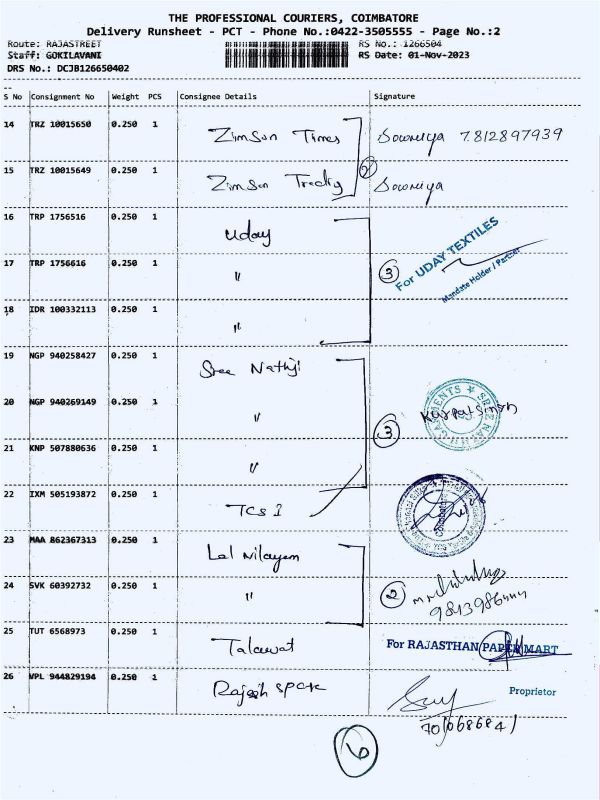 THE PROFESSIONAL COURIERS, COIMBATORE
Delivery Runsheet - PCT - Phone No.:0422-3505555 - Page No.:2
Route: RAJASTREET RS No.: 1266504
Staff: GOKILAVANI RS Date: 01-Nov-2023
DRS No.: DCJB126650402
S No Consignment No Weight PCS Consignee Details Signature
14 TRZ 10015650 0.250 1 Zimson Times Sowmiya 7812897939
15 TRZ 10015649 0.250 1 Zimson Trading 2 Sowmiya
16 TRP 1756516 0.250 1 Uday
For UDAY TEXTILES
17 TRP 1756616 0.250 1 " 3
Mandate Holder / Partner
18 IDR 100332113 0.250 1 "
19 NGP 940258427 0.250 1 Sree Nathji
20 NGP 940269149 0.250 1 " 3
21 KNP 507880636 0.250 1 "
22 IXM 505193872 0.250 1 TCS 1
23 MAA 862367313 0.250 1 Lal Nilayam
24 SVK 60392732 0.250 1 " 2
25 TUT 6568973 0.250 1 Talawat For RAJASTHAN PAPER MART
26 VPL 944829194 0.250 1 Rajesh
Proprietor